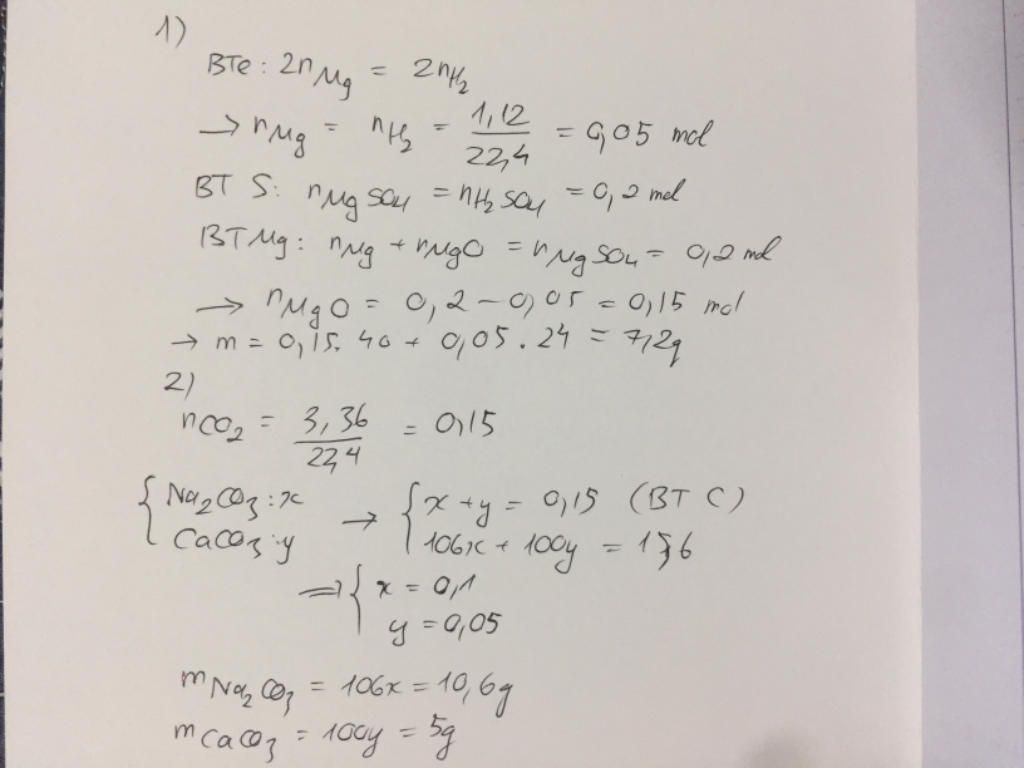 1)
BTe: 2nMg = 2nH2
→ nMg = nH2 = 1,12/22,4 = 0,05 mol
BT S: nMgSO4 = nH2SO4 = 0,2 mol
BTMg: nMg + nMgO = nMgSO4 = 0,2 mol
→ nMgO = 0,2 - 0,05 = 0,15 mol
→ m = 0,15. 40 + 0,05 . 24 = 7,2g
2)
nCO2 = 3,36/22,4 = 0,15
{ Na2CO3: x → { x + y = 0,15 (BT C)
CaCO3: y 106x + 100y = 15,6
⟹ { x = 0,1
y = 0,05
mNa2CO3 = 106x = 10,6g
mCaCO3 = 100y = 5g